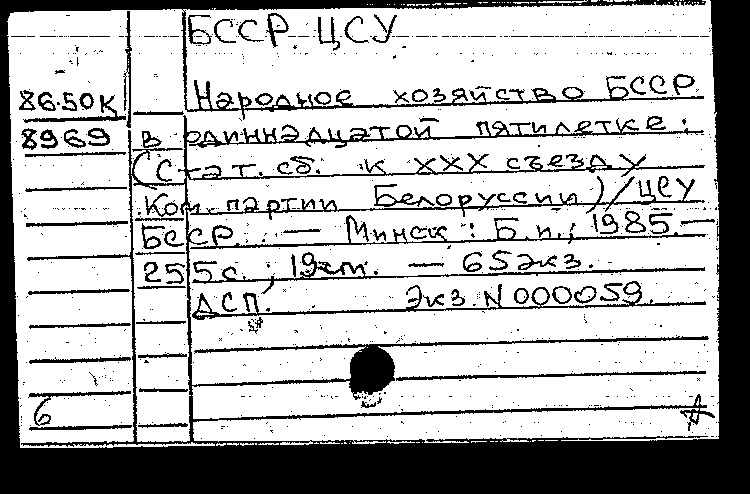 БССР. ЦСУ.
86.50К Народное хозяйство БССР
8969 в одиннадцатой пятилетке:
(Стат. сб. к XXX съезду
Ком. партии Белоруссии)/ЦСУ
БССР. — Минск: Б.и., 1985.—
255с., 19см. — 65экз.
ДСП. Экз. N 000059.
6